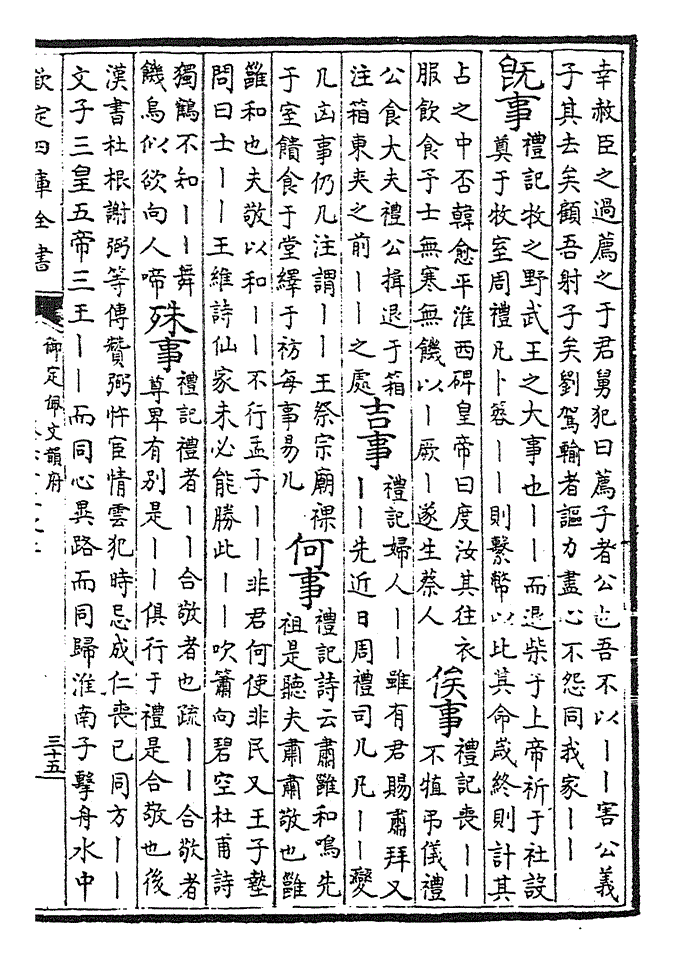 幸赦臣之過薦之于君舅犯曰薦子者公也吾不以丨丨害公義
子其去矣顧吾射子矣劉駕輸者謳力盡心不怨同我家丨丨
既事
禮記牧之野武王之大事也丨丨而退柴于上帝祈于社設
奠于牧室周禮凡卜簭丨丨則繫幣以比其命歲終則計其
占之中否韓愈平淮西碑皇帝曰度汝其往衣
服飲食予士無寒無饑以丨厥丨遂生蔡人
俟事
禮記喪丨丨
不犆弔儀禮
公食大夫禮公揖退于箱
注箱東夾之前丨丨之處
吉事
禮記婦人丨丨雖有君賜肅拜又
丨丨先近日周禮司几凡丨丨變
几凶事仍几注謂丨丨王祭宗廟祼
于室饋食于堂繹于祊每事易几
何事
禮記詩云肅雝和鳴先
祖是聽夫肅肅敬也雝
雝和也夫敬以和丨丨不行孟子丨丨非君何使非民又王子墊
問曰士丨丨王維詩仙家未必能勝此丨丨吹簫向碧空杜甫詩
獨鶴不知丨丨舞
饑烏似欲向人啼
殊事
禮記禮者丨丨合敬者也疏丨丨合敬者
尊卑有別是丨丨俱行于禮是合敬也後
漢書杜根謝弼等傳贊弼忤宦情雲犯時忌成仁喪己同方丨丨
文子三皇五帝三王丨丨而同心異路而同歸淮南子擊舟水中
欽定四庫全書
御定佩文韻府
三十五